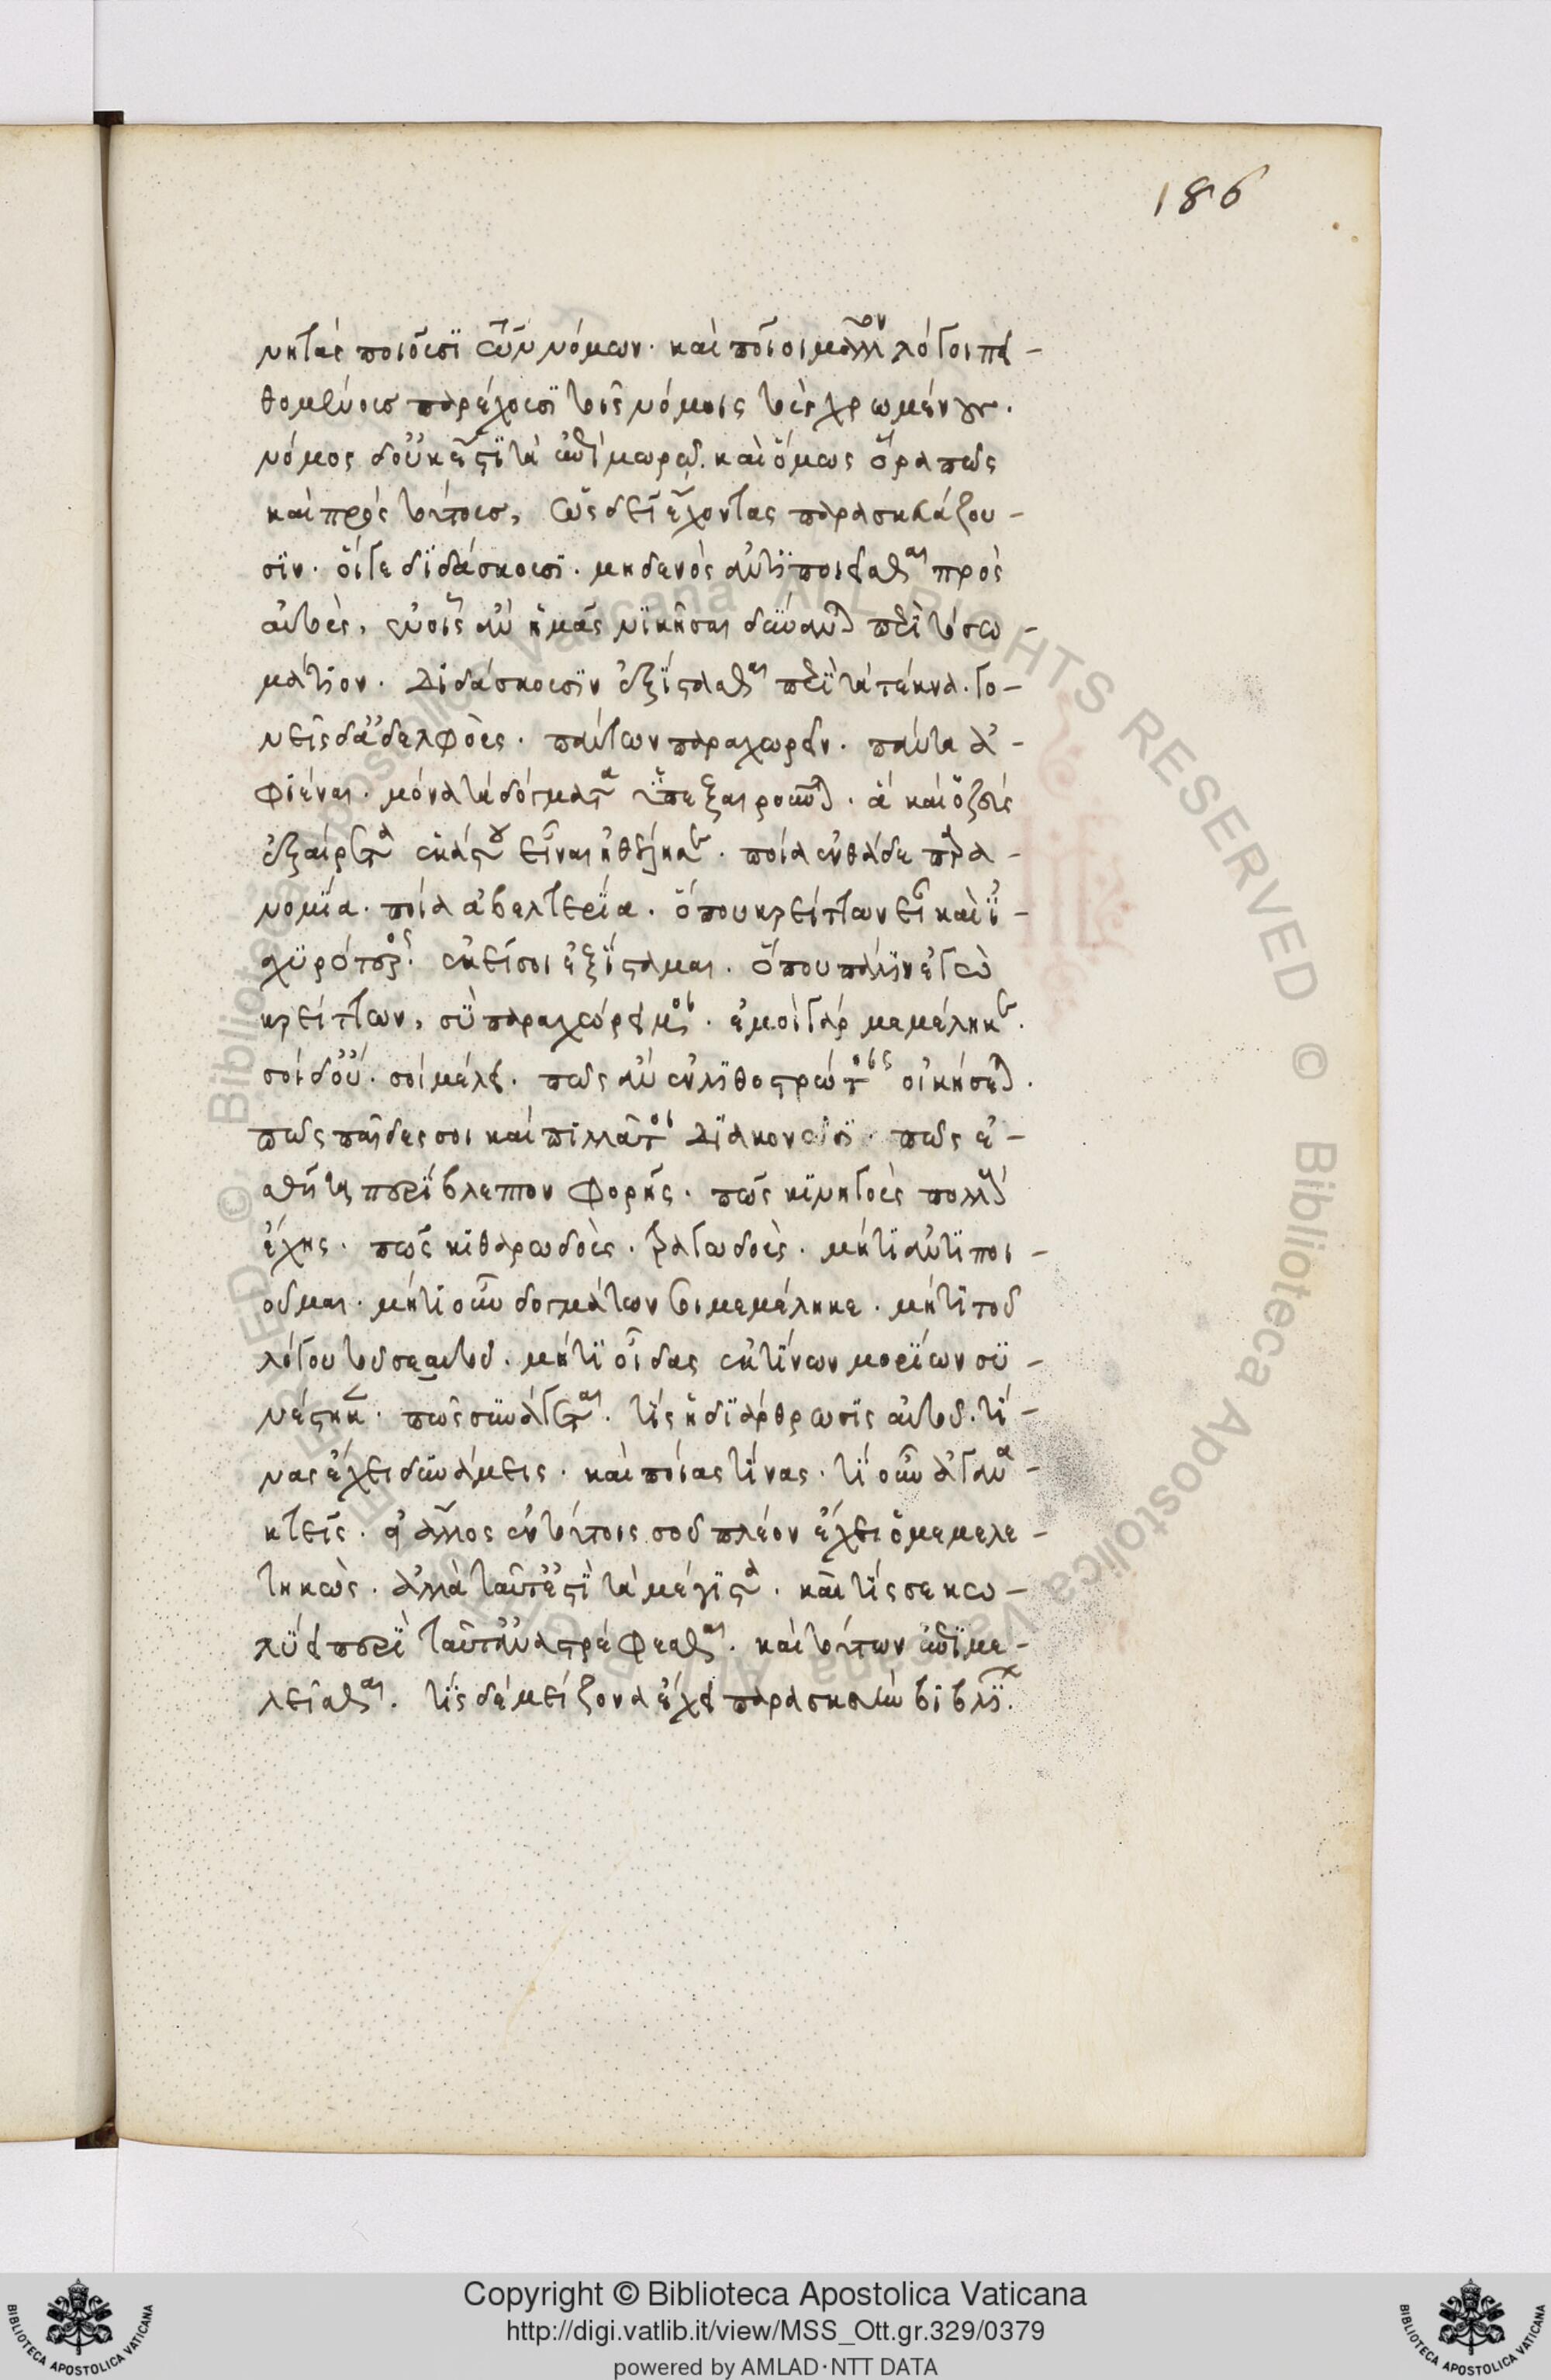 186
νητὰς ποιοῦσι τῶν νόμων· καὶ ποῖοι μᾶλλον λόγοι πει-
θομένους παρέχουσι τοῖς νόμοις τοὺς χρωμένους·
νόμος δ' οὐκ ἔστι τὰ ἐπὶ μωρῷ. καὶ ὅμως ὅρα πῶς
καὶ πρὸς τούτους, ὡς δεῖ ἔχοντας παρασκευάζου-
σιν· οἵ γε διδάσκουσι· μηδενὸς ἀντιποιεῖσθαι πρὸς
αὐτοὺς, ἐν οἷς ἂν ἡμᾶς νικῆσαι δύνανται περὶ τὸ σω-
μάτιον· διδάσκουσιν ἐξίστασθαι περὶ τὰ τέκνα· γο-
νεῖς δ' ἀδελφοὺς· πάντων παραχωρεῖν· πάντα ἀ-
φιέναι· μόνα τὰ δόγματα ὑπεξαιροῦνται· ἃ καὶ ὁ ζεὺς
ἐξαίρετα ἑκάστου εἶναι ἠθέληκεν· ποία ἐνθάδε παρα-
νομία· ποία ἀβελτερία· ὅπου κρείττων εἶ καὶ ἰ-
σχυρότερος· ἐκεῖ σοι ἐξίσταμαι· ὅπου πάλιν ἐγὼ
κρείττων, σὺ παραχώρει μοι· ἐμοὶ γὰρ μεμέληκεν·
σοὶ δ' οὔ· σοὶ μέλει· πῶς ἂν ἐν λιθοστρώτοις οἰκήσεται·
πῶς παῖδες σοι καὶ πιλλᾶτοι διακονῶσι· πῶς ἐ-
σθῆτα περίβλεπτον φορῇς· πῶς κυνηγοὺς πολλοὺς
ἔχῃς· πῶς κιθαρῳδοὺς· τραγῳδοὺς· μή τι ἀντιποι-
οῦμαι· μή τι οὖν δογμάτων σοι μεμέληκε· μή τι τοῦ
λόγου τοῦ σεαυτοῦ· μή τι οἶδας ἐκ τίνων μορίων συ-
νέστηκε· πῶς συνάγεται· τίς ἡ διάρθρωσις αὐτοῦ· τί-
νας ἔχει δυνάμεις· καὶ ποίας τινας· τί οὖν ἀγανα-
κτεῖς· εἰ ἄλλος ἐν τούτοις σοῦ πλέον ἔχει ὁ μεμελε-
τηκὼς· ἀλλὰ ταῦτ' ἔστι τὰ μέγιστα· καὶ τίς σε κω-
λύει περὶ ταῦτ' ἀναστρέφεσθαι· καὶ τούτων ἐπιμε-
λεῖσθαι· τίς δὲ μείζονα ἔχει παρασκευὴν βιβλίων·
Copyright © Biblioteca Apostolica Vaticana
http://digi.vatlib.it/view/MSS_Ott.gr.329/0379
powered by AMLAD·NTT DATA